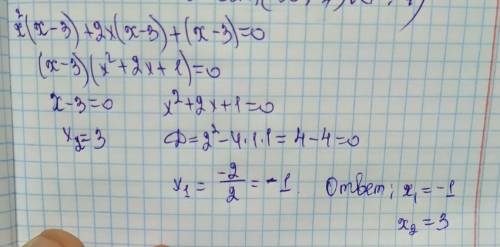 x²(x-3)+2x(x-3)+(x-3)=0
(x-3)(x²+2x+1)=0
x-3=0 x²+2x+1=0
x₂=3 Д=2²-4·1·1=4-4=0
x₁=-2/2=-1. Ответ: x₁=-1
x₂=3